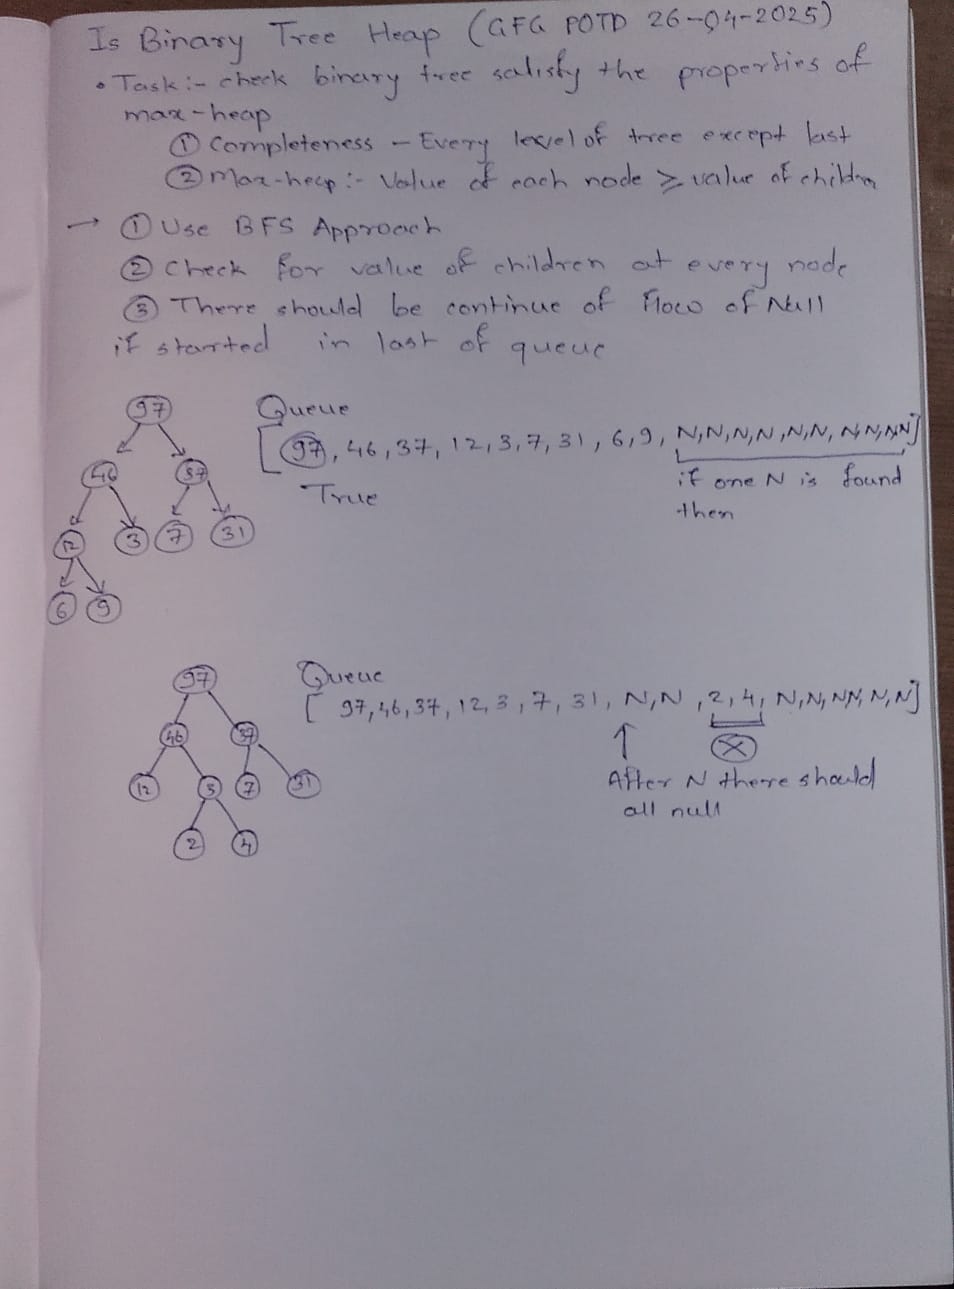 Is Binary Tree Heap (GFG POTD 26-04-2025)
• Task :- check binary tree satisfy the properties of
max-heap
① Completeness - Every level of tree except last
② Max-heap :- Value of each node ≥ value of children
→ ① Use BFS Approach
② Check for value of children at every node
③ There should be continue of flow of Null
if started in last of queue
97
Queue
[97, 46, 37, 12, 3, 7, 31, 6, 9, N,N,N,N,N,N,N,N,N,N]
True
if one N is found
then
46 37
12 3 7 31
6 9
97
Queue
[97,46,37,12,3,7,31,N,N,2,4,N,N,N,N,N,N]
46 37
After N there should
all null
12 3 7 31
2 4